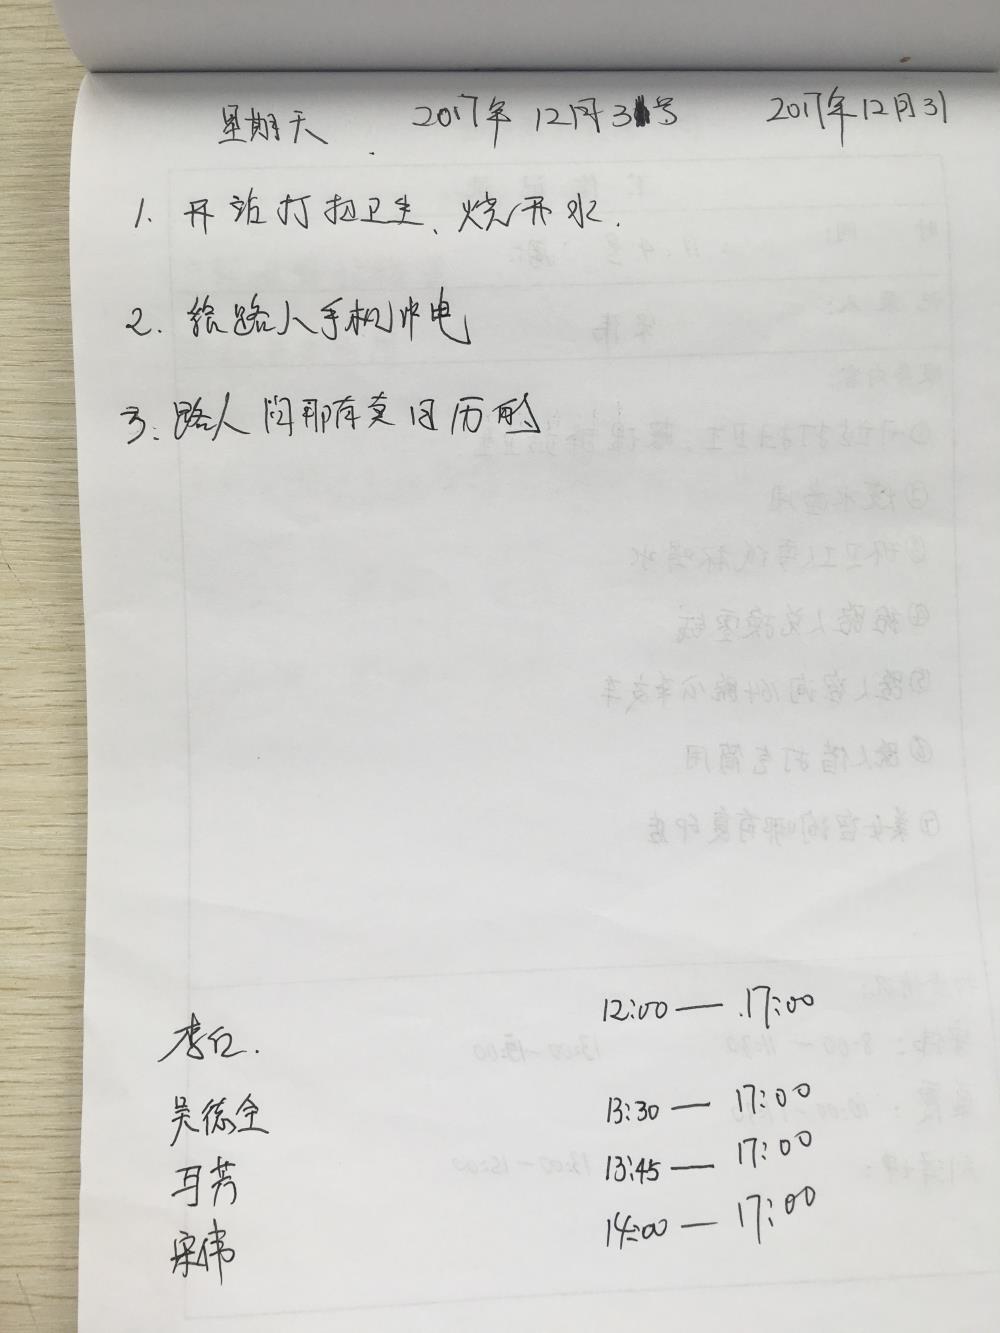 星期天 2017年12月31号 2017年12月31
1. 开站打扫卫生、烧开水.
2. 给路人手机冲电
3. 路人问那有卖日历的
李红. 12:00 — 17:00
吴德全 13:30 — 17:00
马芳 13:45 — 17:00
宋伟 14:00 — 17:00